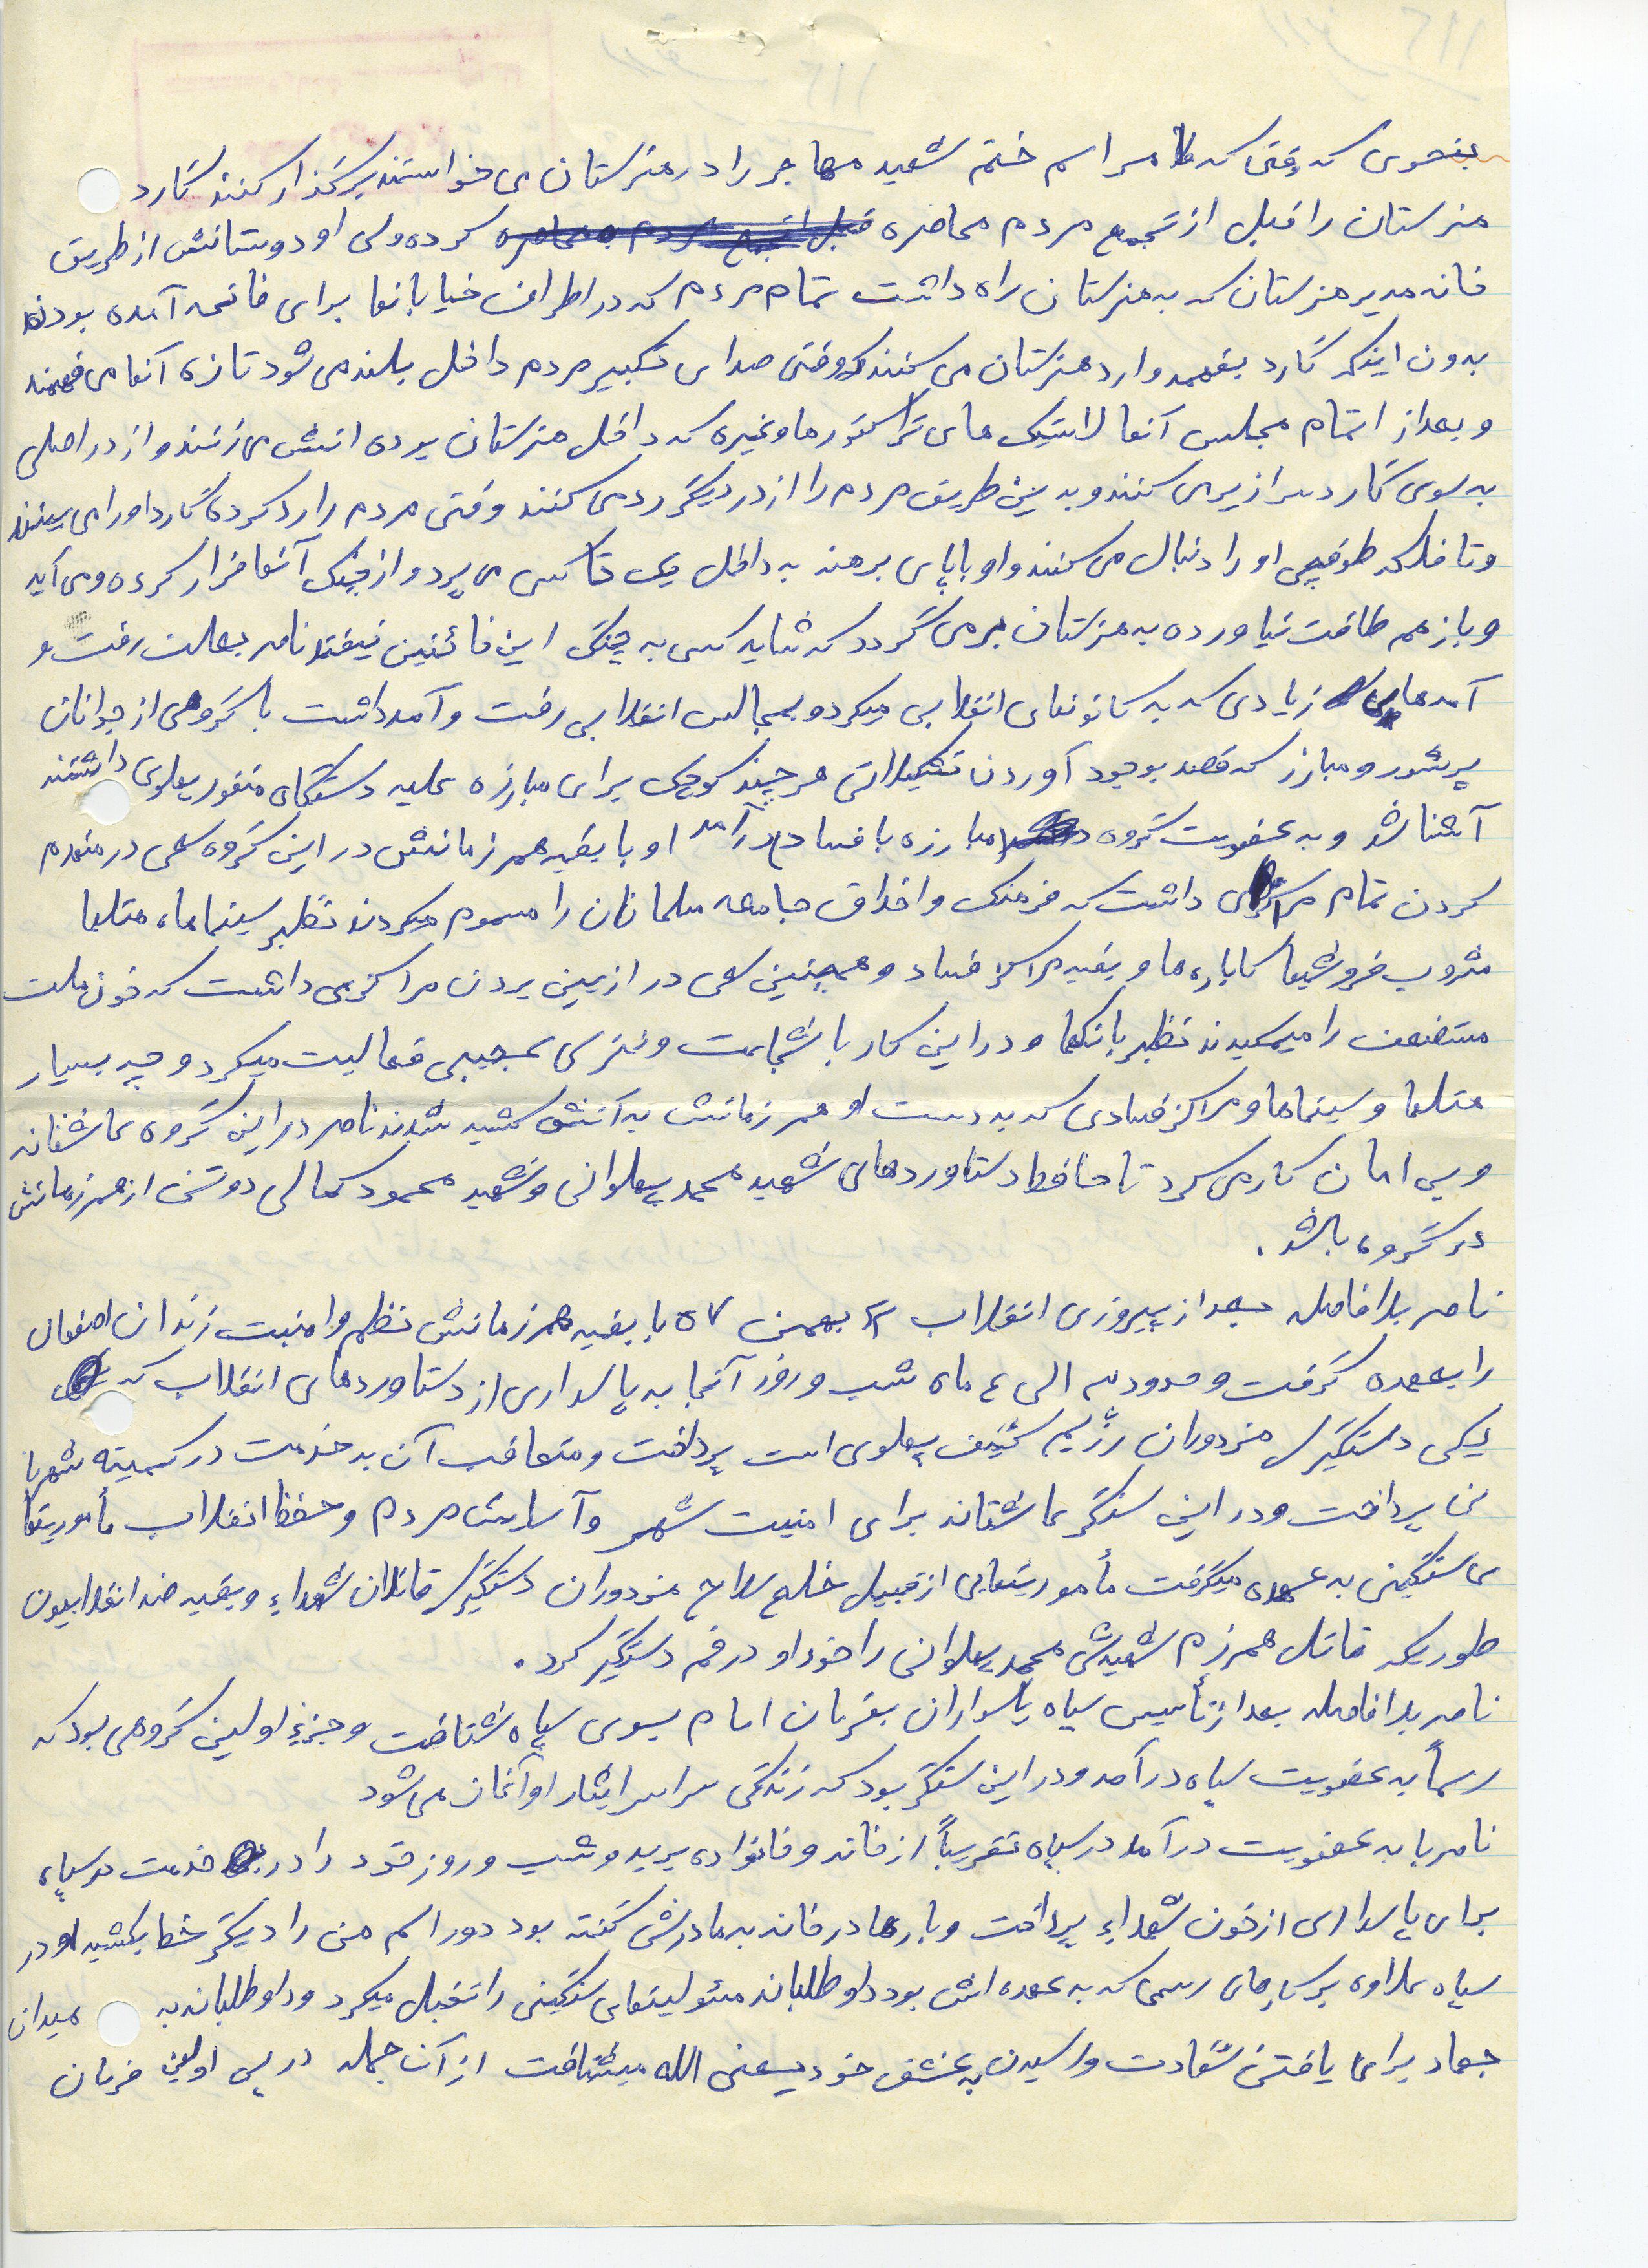 بنحوی که وقتی که مراسم ختم شهید مهاجر را در هنرستان می خواستند برگذار کنند گارد
هنرستان را قبل از تجمع مردم محاصره کرده ولی او و دوستانش از طریق
خانه مدیر هنرستان که به هنرستان راه داشت تمام مردم که در اطراف خیابانها برای فاتحه آمده بودند
بدون اینکه گارد بفهمد وارد هنرستان می کنند و وقتی صدای تکبیر مردم داخل بلند می شود تازه آنها می فهمند
و بعد از اتمام مجلس آنها لاستیک های تراکتورها و غیره که داخل هنرستان بوده اتش می زنند و از در اصلی
به سوی گارد سرازیر می کنند و بدین طریق مردم را از در دیگر رد می کنند وقتی مردم را رد کرده گارد او را می بینند
و تا فلکه طوقچی او را دنبال می کنند و او با پای برهنه به داخل یک تاکسی می پرد و از چنگ آنها فرار کرده و می آید
و باز هم طاقت نیاورده به هنرستان برمی گردد که شاید کسی به چنگ این خائنین نیفتد ناصر بعلت رفت و
آمدهای زیادی که به کانونهای انقلابی میکرد و بمجالس انقلابی رفت و آمد داشت با گروهی از جوانان
پرشور و مبارز که قصد بوجود آوردن تشکیلاتی هر چند کوچک برای مبارزه علیه دستگاه منفور پهلوی داشتند
آشنا شد و به عضویت گروه مبارزه با فساد درآمد او با بقیه همرزمانش در این گروه سعی در منهدم
کردن تمام مراکزی داشت که فرهنگ و اخلاق جامعه مسلمانان را مسموم میکردند نظیر سینماها، هتلها
مشروب فروشیها کاباره ها و بقیه مراکز فساد و همچنین سعی در از بین بردن مراکزی داشت که خون ملت
مستضعف را میمکیدند نظیر بانکها و در این کار با شجاعت و نترسی عجیبی فعالیت میکرد و چه بسیار
هتلها و سینماها و مراکز فسادی که به دست او و همرزمانش به آتش کشیده شدند ناصر در این گروه عاشقانه
و بی امان کار می کرد تا حافظ دستاوردهای شهید محمد پهلوانی و شهید محمود کمالی دو تن از همرزمانش
در گروه باشد.
ناصر بلافاصله بعد از پیروزی انقلاب بهمن ۵۷ با بقیه همرزمانش نظم و امنیت زندان اصفهان
را بعهده گرفت و حدود ۳ الی ۴ ماه شب و روز آنجا به پاسداری از دستاوردهای انقلاب که
یکی دستگیری مزدوران رژیم کثیف پهلوی است پرداخت و متعاقب آن به خدمت در کمیته شهربا
نی پرداخت و در این سنگر عاشقانه برای امنیت شهر و آسایش مردم و حفظ انقلاب مأموریتها
ی سنگینی به عهده میگرفت مأموریتهایی از قبیل خلع سلاح مزدوران دستگیری قاتلان شهداء و بقیه ضد انقلابیون
طوریکه قاتل همرزم شهیدش محمد پهلوانی را خود او در قم دستگیر کرد.
ناصر بلافاصله بعد از تأسیس سپاه پاسداران بفرمان امام بسوی سپاه شتافت و جزء اولین گروهی بود که
رسماً به عضویت سپاه درآمد و در این سنگر بود که زندگی سراسر ایثار او آغاز می شود
ناصر با به عضویت درآمدن در سپاه تقریباً از خانه و خانواده برید و شب و روز خود را در خدمت در سپاه
برای پاسداری از خون شهداء پرداخت و بارها در خانه به مادرش گفته بود دور اسم من را دیگر خط بکشید او در
سپاه علاوه بر کارهای رسمی که به عهده اش بود داوطلبانه مسئولیتهای سنگینی را تقبل میکرد و داوطلبانه به میدان
جهاد برای یافتن شهادت و رسیدن به عشق خود یعنی الله میشتافت از آن جمله در پی اولین فرمان